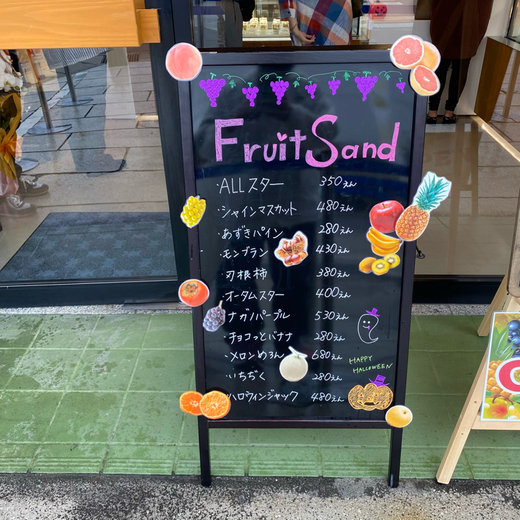 Fruit Sand
・ALLスター 350えん
・シャインマスカット 480えん
・あずきパイン 280えん
・モンブラン 430えん
・刀根柿 380えん
・オータムスター 400えん
・ナガノパープル 530えん
・チョコっとバナナ 280えん
・メロンめろん 680えん
・いちぢく 280えん
・ハロウィンジャック 480えん
HAPPY
HALLOWEEN